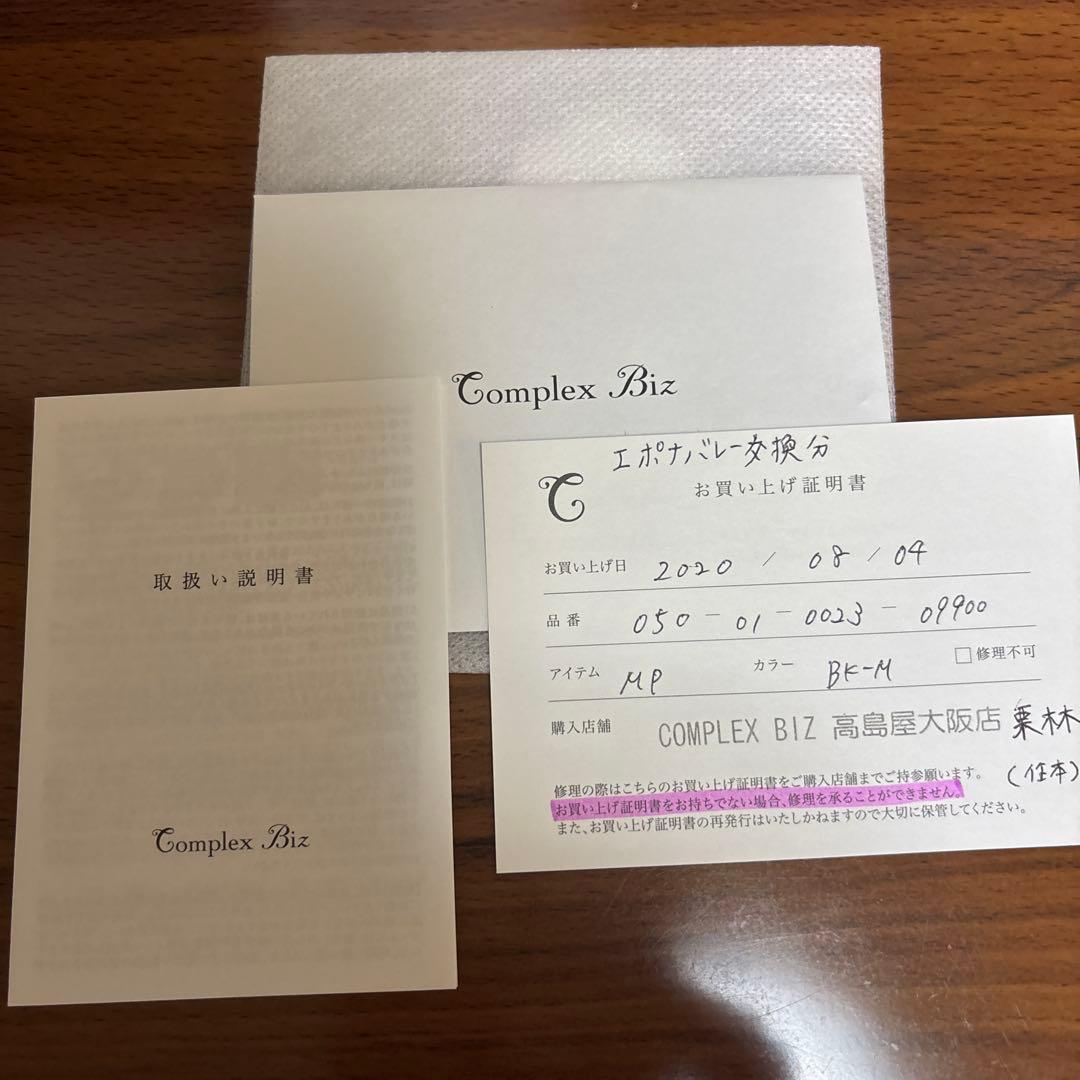 Complex Biz
取扱い説明書
Complex Biz
エポナバレー交換分
お買い上げ証明書
お買い上げ日 2020 / 08 / 04
品番 050-01-0023-09900
アイテム MP カラー BK-M □修理不可
購入店舗 COMPLEX BIZ 高島屋大阪店 栗林
(住本)
修理の際はこちらのお買い上げ証明書をご購入店舗までご持参願います。
お買い上げ証明書をお持ちでない場合、修理を承ることができません。
また、お買い上げ証明書の再発行はいたしかねますので大切に保管してください。